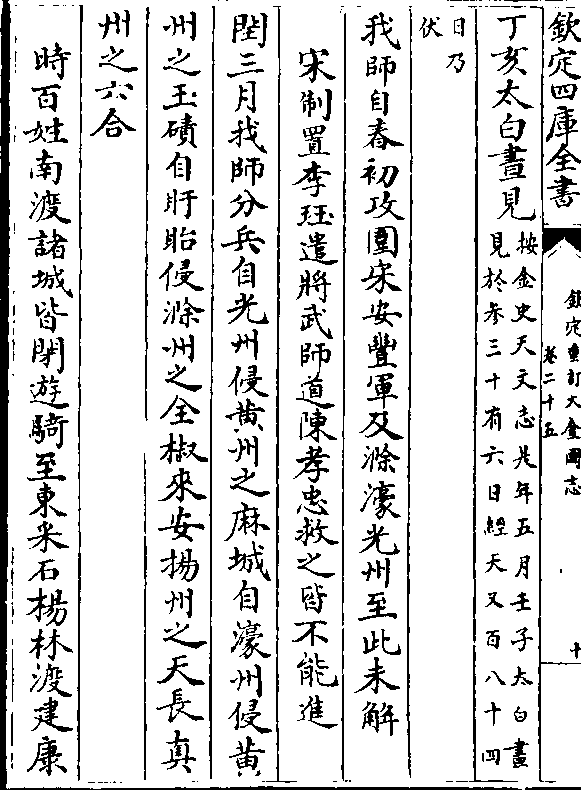 欽定四庫全書
欽定重訂大金國志
卷二十五
十
丁亥太白晝見
按金史天文志是年五月壬子太白晝
見於參三十有六日經天又百八十四
日乃
伏
我師自春初攻圍宋安豐軍及滁濠光州至此未解
宋制置李珏遣將武師道陳孝忠救之皆不能進
閏三月我師分兵自光州侵黃州之麻城自濠州侵黃
州之玉磧自盱眙侵滁州之全椒來安揚州之天長真
州之六合
時百姓南渡諸城皆閉遊騎至東采石楊林渡建康